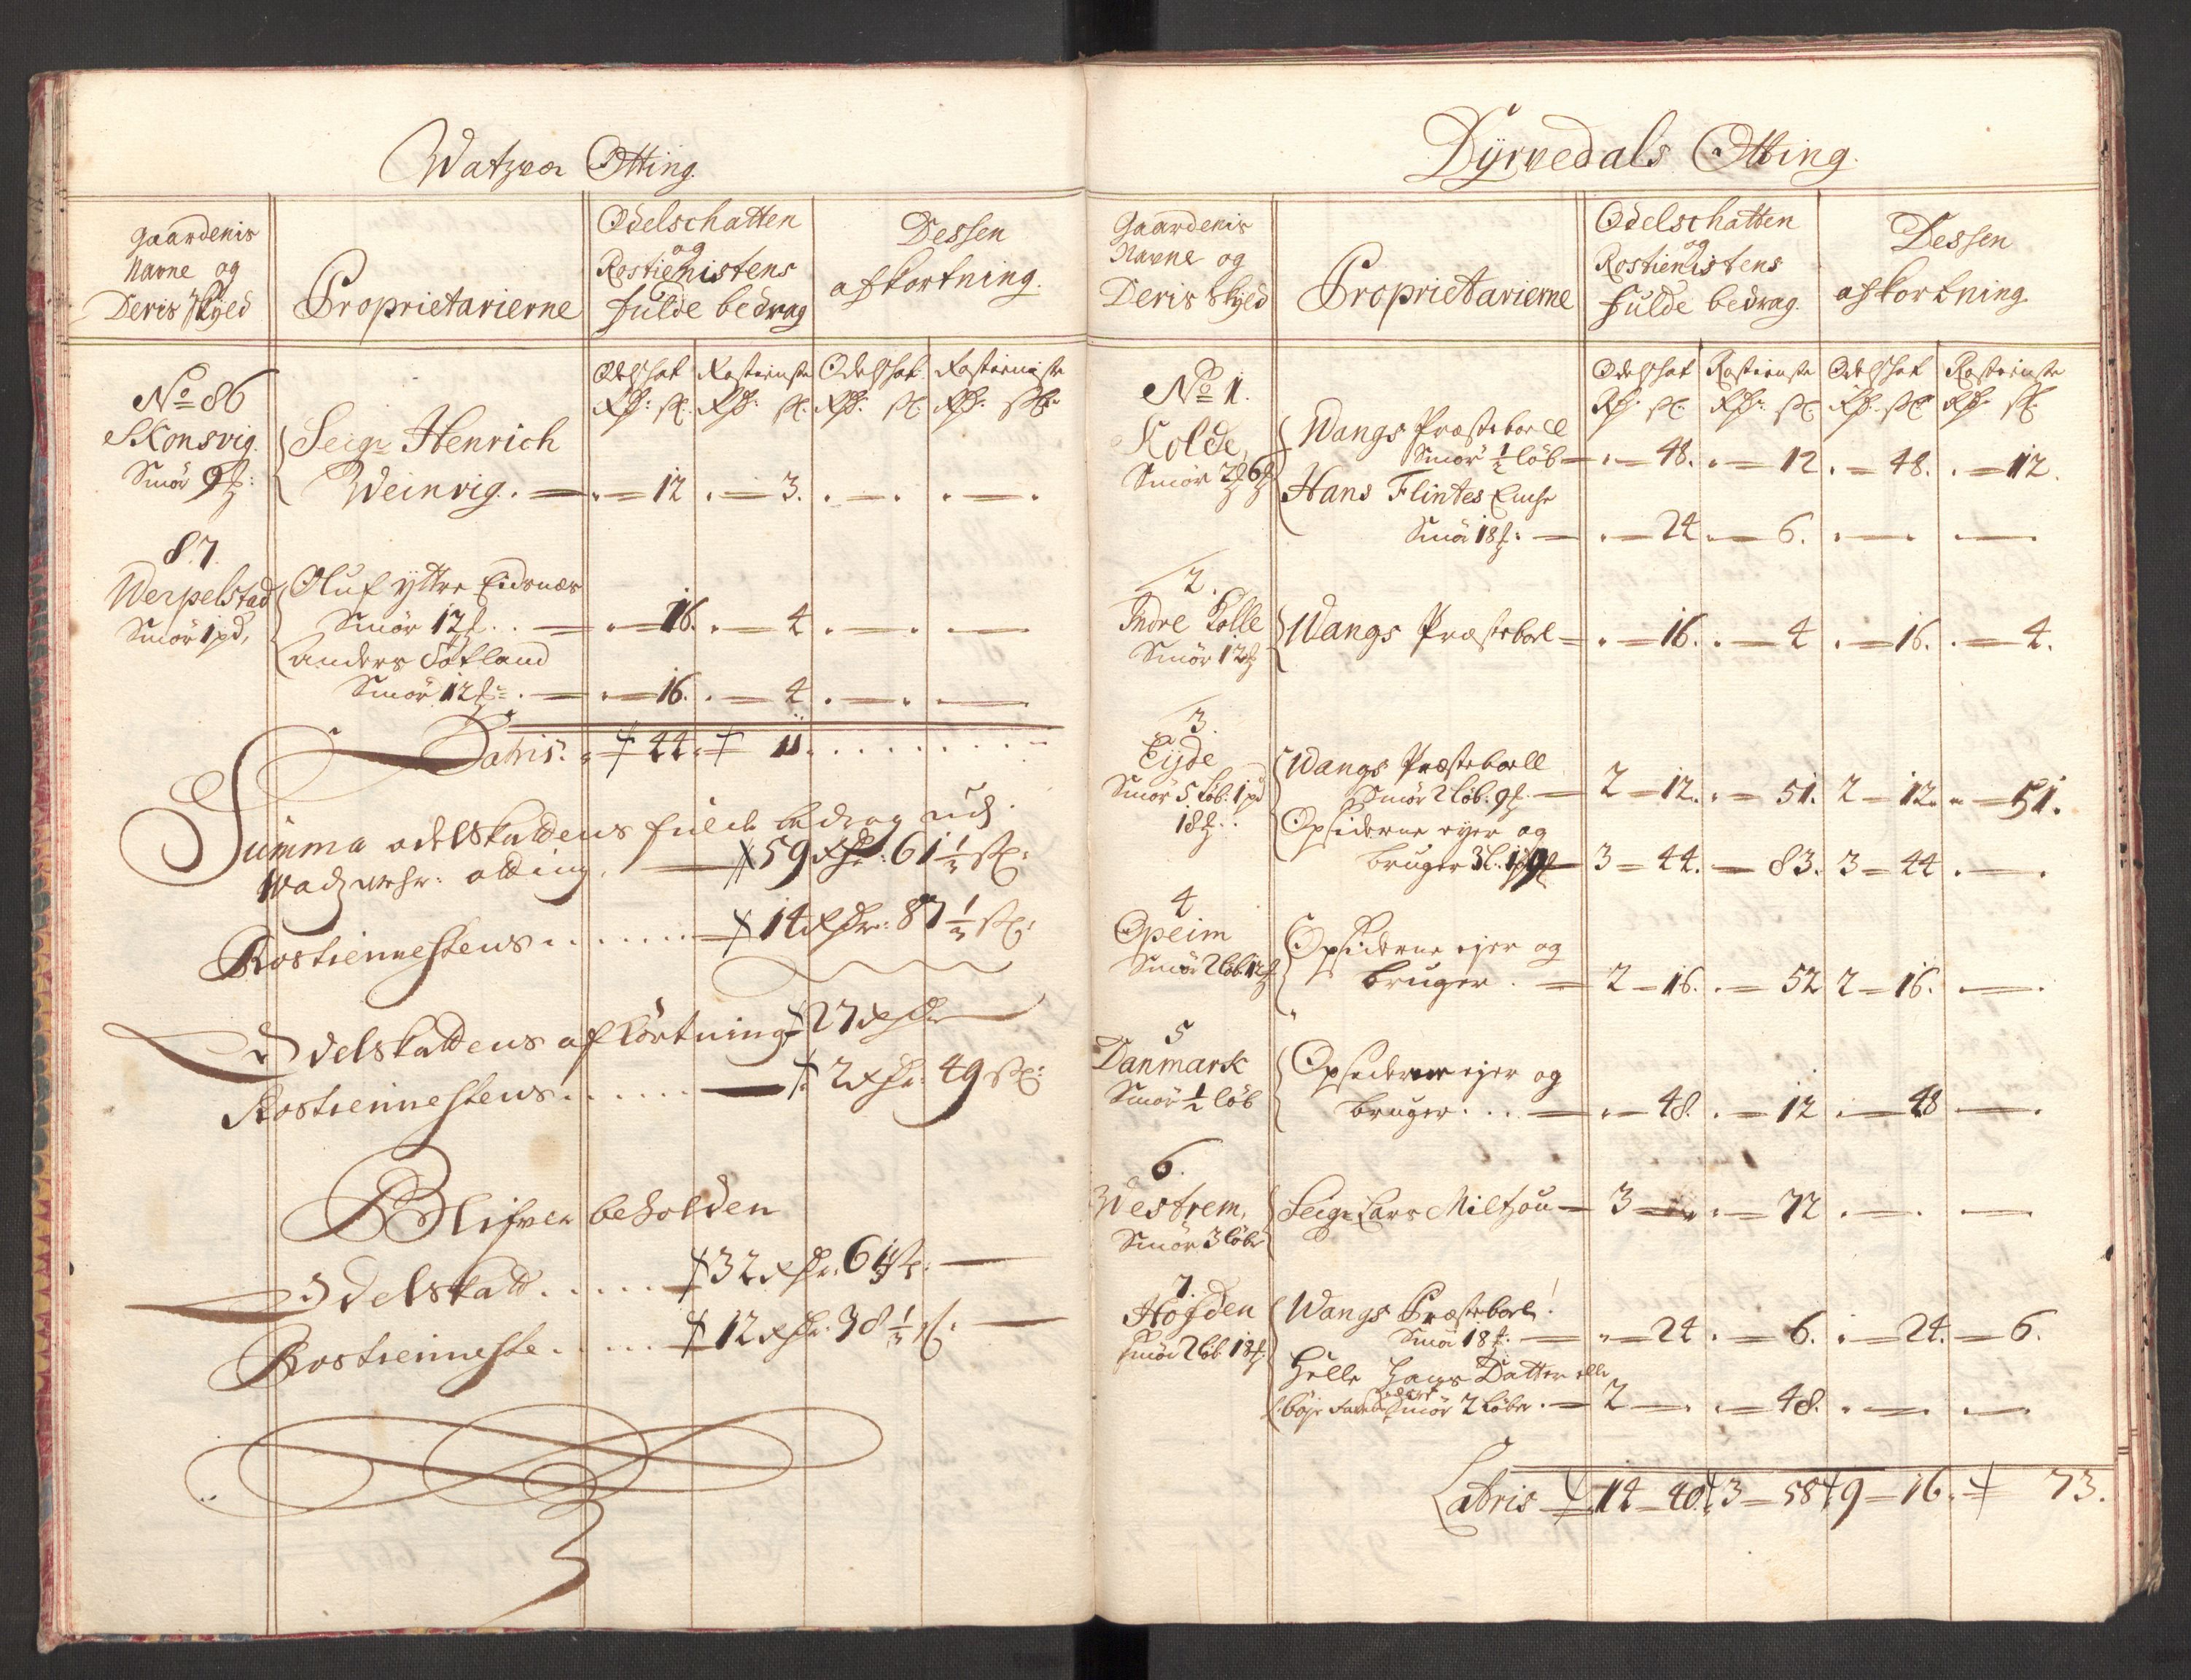 Watzver Otting.
Gaardenis Navne og Deris Skyld
Proprietarierne
Odelschatten og Rostienistens fulde bedrag
Dessen afkortning.
Odelschat Rostienste Odelschat Rostieniste
Rd: sk. Rd: sk. Rd: sk. Rd: sk.
No 86
Skonsvig.
Smör 9
Seigr Henrich
Weinvig. 12 3.
87.
Werpelstad
Smör 1 pd,
Oluf yttre Eidsnæs
Smör 12 16. 4
Anders
Smör 12 16. 4
Latris. 44. 11.
Summa odelskattens fulde bedrag udj
otting. 59 Rdr: 61 1/2 sk:
Rostiennestens 14 Rdr: 87 1/2 sk:
Odelskattens afkortning 27 Rdr
Rostiennestens 2 Rdr: 49 sk:
Blifver beholden
Odelskatt 32 Rdr. 61 1/2 sk.
Rostienneste 12 Rdr. 38 1/2 sk.
Dyrvedals Otting.
Gaardenis Navne og Deris Skyld
Proprietarierne
Odelschatten og Rostienistens fulde bedrag.
Dessen afkortning
Odelschat Rostienste Odelschat Rostienste
Rd: sk. Rd: sk. Rd. sk. Rd. sk.
No 1.
Kolde,
Smör
Wangs Præsteboell
Smör 1/2 löb 48. 12. 48. 12.
Hans Flintes Enche
Smör 18 24 6.
2.
Indre Kolle
Smör 12
Wangs Præstebol 16. 4 16. 4.
3.
Eyde
Smör 5 löb. 1 pd
18
Wangs Præsteboell
Smör 2 löb. 9 2 12. 51. 2 12. 51.
Opsiderne eyer og
bruger 3 44. 83. 3 44
4
Opeim
Smör 2 löb. 12
Opsiderne ejer og
bruger. 2 16. 52 2 16.
5
Danmark
Smör 1/2 löb
Opsiderne ejer og
bruger 48. 12 48
6.
Westrem,
Smör 3 löbe
Seigr Lars Miltzou 3 72
7.
Höfden
Smör 2 löb. 18
Wangs Præstebol
Smör 18 24 6. 24. 6.
Helle Hans Datter
Smör 2 löber. 2 48.
Latris 14 40. 3 58 9 16. 73.